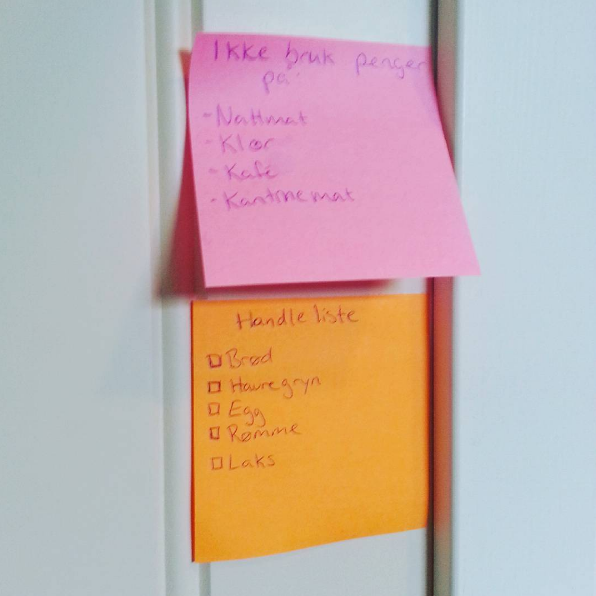 Ikke bruk penger
på:
- Nattmat
- Klær
- Kafé
- Kantinemat
Handleliste
Brød
Havregryn
Egg
Rømme
Laks